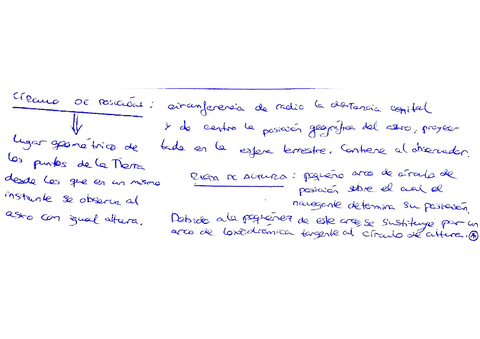 CÍRCULO DE POSICIÓN: circunferencia de radio la distancia cenital
y de centro la posición geográfica del astro, proyec-
tada en la esfera terrestre. Contiene al observador.
Lugar geométrico de
los puntos de la Tierra
desde los que en un mismo
instante se observa al
astro con igual altura.
RECTA DE ALTURA: pequeño arco de círculo de
posición sobre el cual el
navegante determina su posición.
Debido a la pequeñez de este arco, se sustituye por un
arco de loxodrómica tangente al círculo de altura.